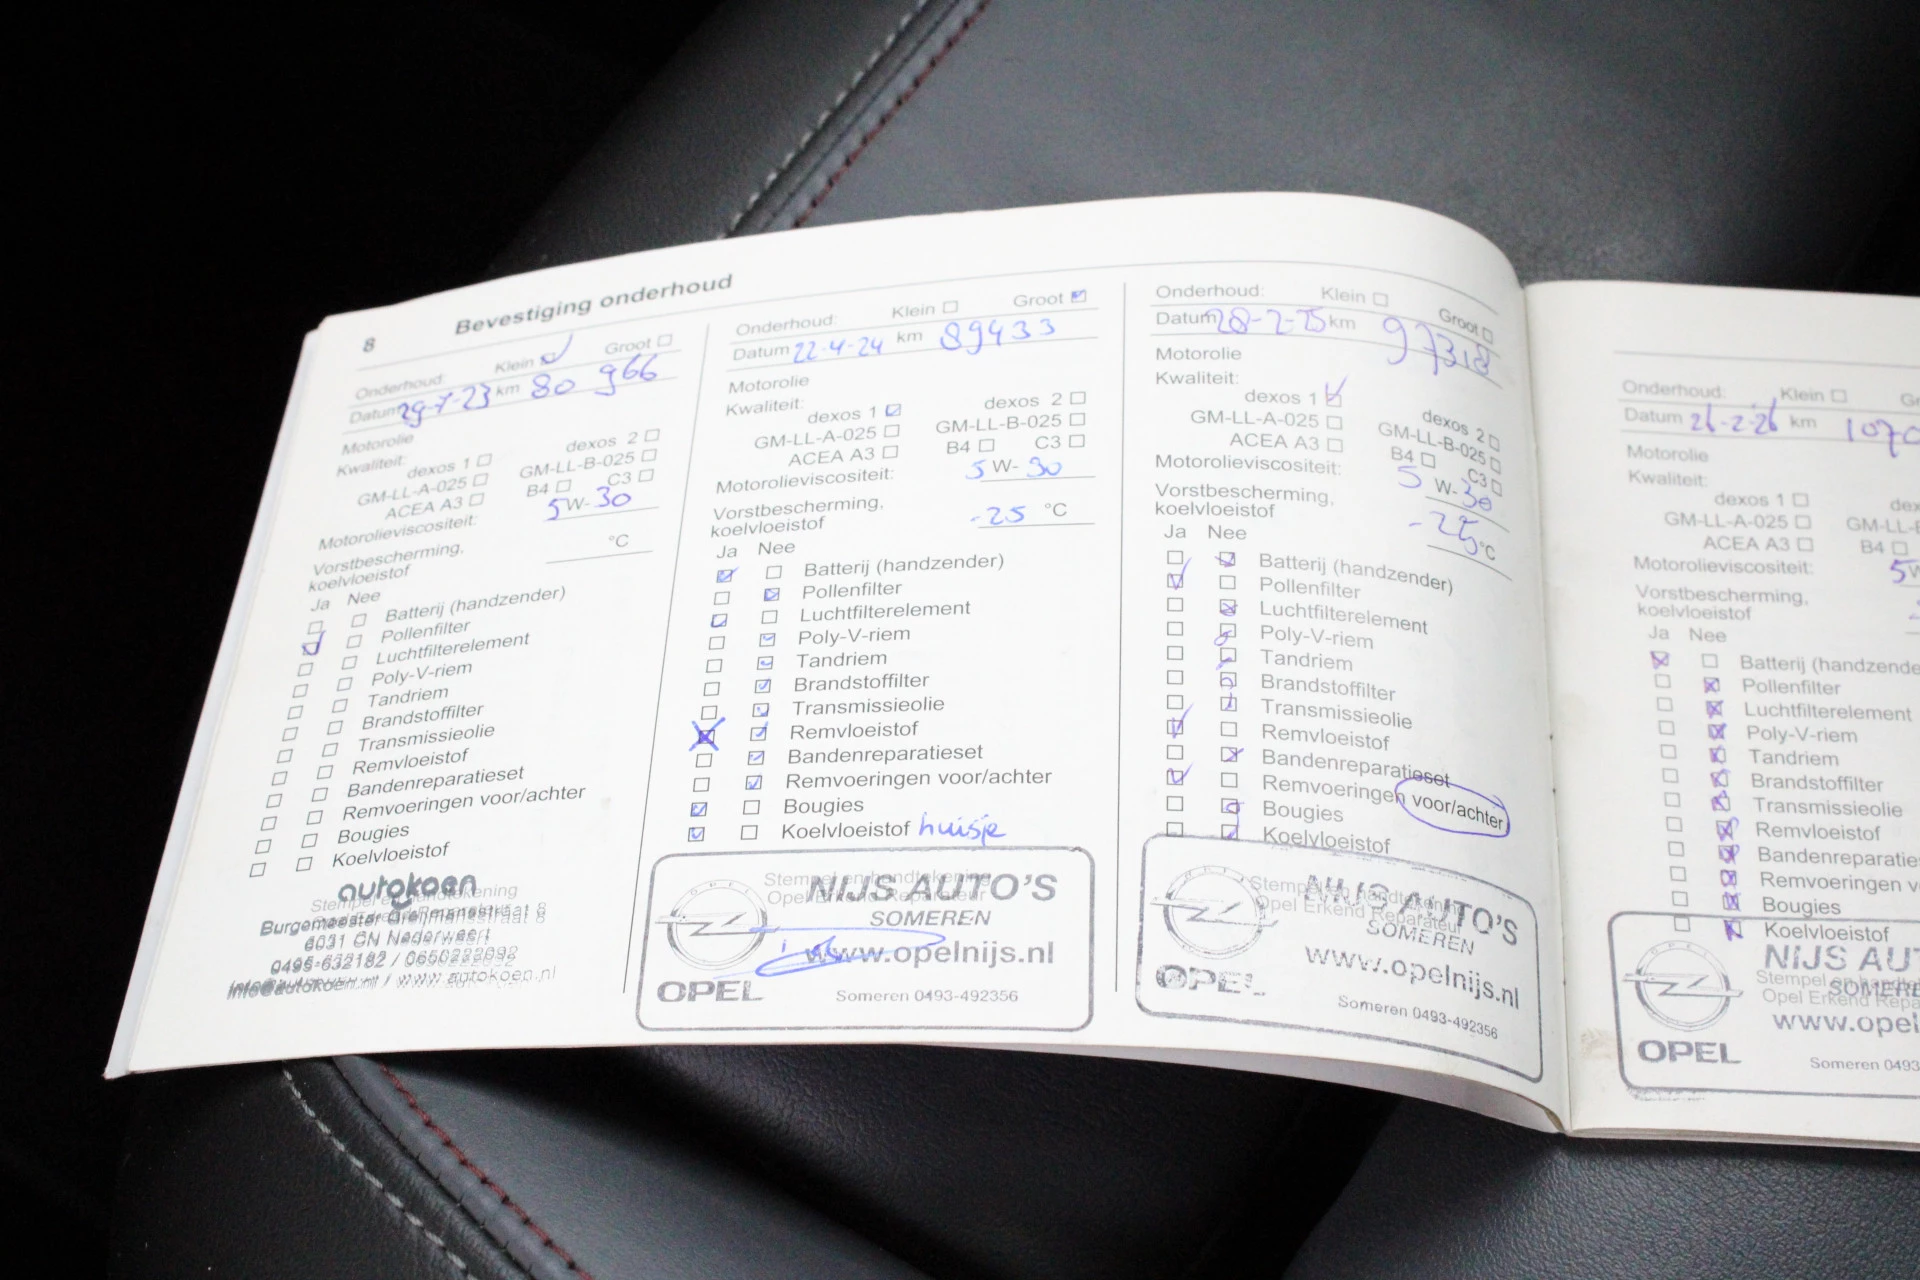 8 Bevestiging onderhoud
Onderhoud: Klein Groot
Datum 29-7-23 km 80 966
Motorolie
Kwaliteit:
dexos 1 dexos 2
GM-LL-A-025 GM-LL-B-025
ACEA A3 B4 C3
Motorolieviscositeit: 5 W- 30
Vorstbescherming,
koelvloeistof °C
Ja Nee
Batterij (handzender)
Pollenfilter
Luchtfilterelement
Poly-V-riem
Tandriem
Brandstoffilter
Transmissieolie
Remvloeistof
Bandenreparatieset
Remvoeringen voor/achter
Bougies
Koelvloeistof
autokoen
Stempel en handtekening
Burgemeester Greijmansstraat 8
6031 CN Nederweert
0495-632182 / 0650222092
info@autokoen.nl / www.autokoen.nl
Onderhoud: Klein Groot
Datum 22-4-24 km 89433
Motorolie
Kwaliteit:
dexos 1 dexos 2
GM-LL-A-025 GM-LL-B-025
ACEA A3 B4 C3
Motorolieviscositeit: 5 W- 30
Vorstbescherming,
koelvloeistof -25 °C
Ja Nee
Batterij (handzender)
Pollenfilter
Luchtfilterelement
Poly-V-riem
Tandriem
Brandstoffilter
Transmissieolie
Remvloeistof
Bandenreparatieset
Remvoeringen voor/achter
Bougies
Koelvloeistof huisje
Stempel en handtekening
Opel Erkend Reparateur
NIJS AUTO'S
SOMEREN
www.opelnijs.nl
OPEL Someren 0493-492356
Onderhoud: Klein Groot
Datum 28-2-25 km 97318
Motorolie
Kwaliteit:
dexos 1 dexos 2
GM-LL-A-025 GM-LL-B-025
ACEA A3 B4 C3
Motorolieviscositeit: 5 W-30
Vorstbescherming,
koelvloeistof -25 °C
Ja Nee
Batterij (handzender)
Pollenfilter
Luchtfilterelement
Poly-V-riem
Tandriem
Brandstoffilter
Transmissieolie
Remvloeistof
Bandenreparatieset
Remvoeringen voor/achter
Bougies
Koelvloeistof
Stempel en handtekening
Opel Erkend Reparateur
NIJS AUTO'S
SOMEREN
www.opelnijs.nl
OPEL Someren 0493-492356
Onderhoud: Klein
Datum 26-2-26 km 1070
Motorolie
Kwaliteit:
dexos 1
GM-LL-A-025 GM-LL-
ACEA A3 B4
Motorolieviscositeit: 5 W
Vorstbescherming,
koelvloeistof
Ja Nee
Batterij (handzende
Pollenfilter
Luchtfilterelement
Poly-V-riem
Tandriem
Brandstoffilter
Transmissieolie
Remvloeistof
Bandenreparaties
Remvoeringen v
Bougies
Koelvloeistof
NIJS AUT
Stempel en handte
SOMERE
Opel Erkend Repa
www.opel
OPEL Someren 0493